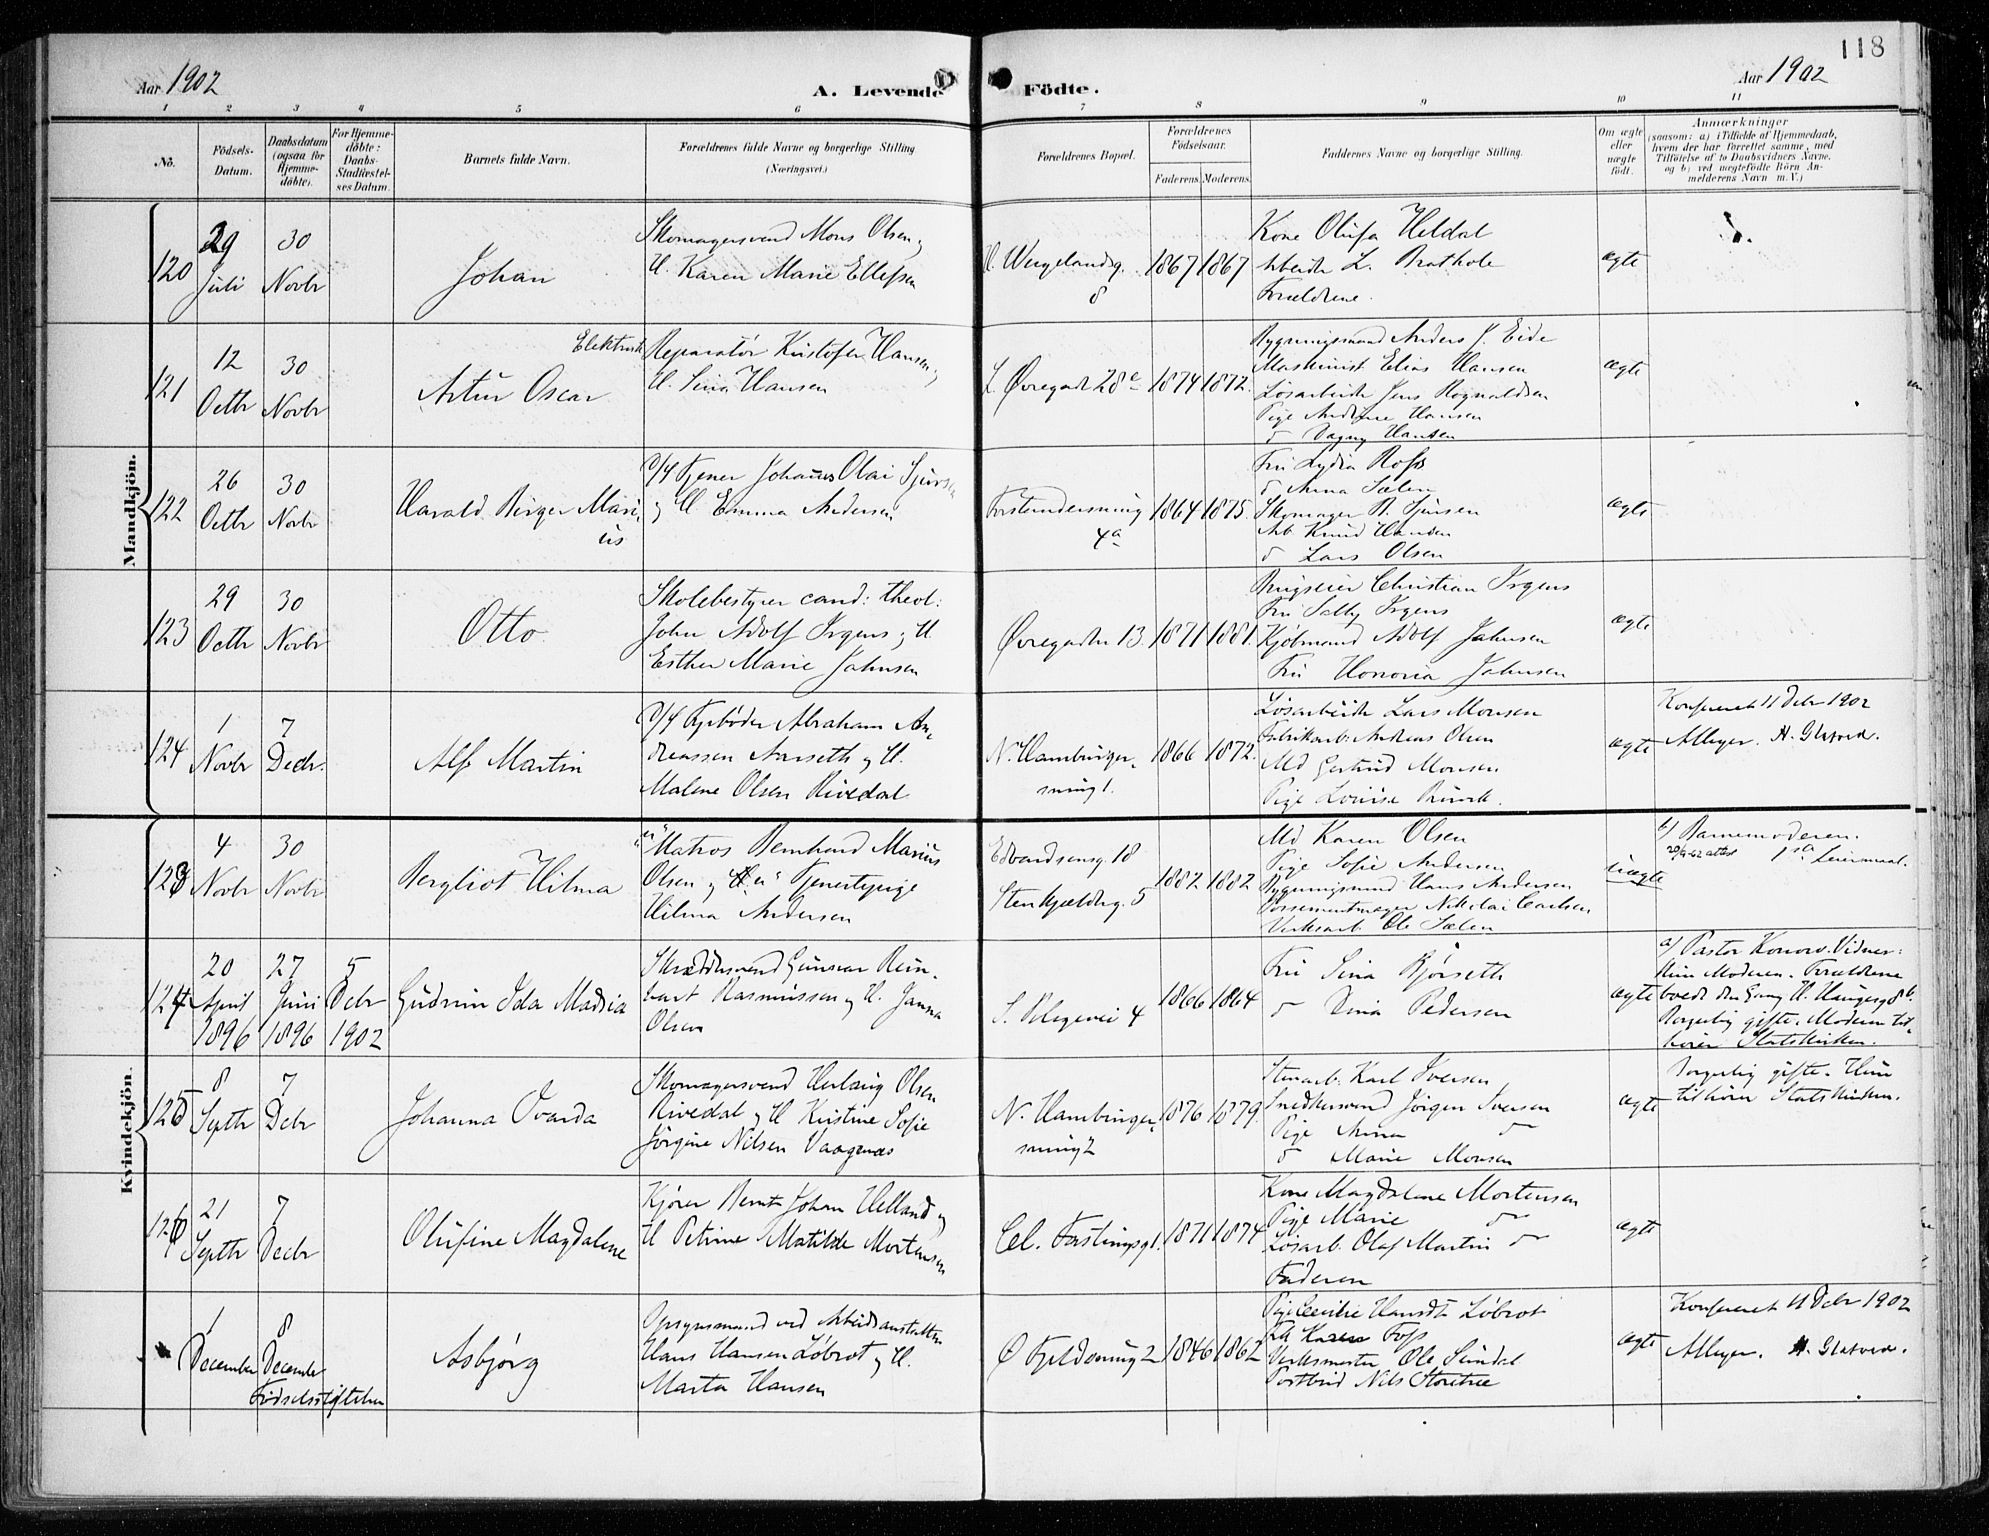 118
Aar 1902
A. Levende Födte.
Aar 1902
1 2 3 4 5 6 7 8 9 10 11
No.
Födsels-
Datum.
Daabsdatum
(ogsaa for
Hjemme-
döbte).
For Hjemme-
döbte:
Daabs-
Stadfæstel-
ses Datum.
Barnets fulde Navn.
Forældrenes fulde Navne og borgerlige Stilling
(Næringsvei.)
Forældrenes Bopæl.
Forældrenes
Födselsaar.
Faderens. Moderens.
Faddernes Navne og borgerlige Stilling.
Om ægte
eller
uægte
födt.
Anmærkninger
(saasom: a) i Tilfælde af Hjemmedaab,
hvem der har forrettet samme, med
Tilföielse af to Daabsvidners Navne,
og b) ved uægtefödte Börn An-
melderens Navn m. V.)
Mandkjön.
120
29
Juli
30
Novbr
Johan
Skomagersvend Mons Olsen,
H. Karen Marie Ellefsen
H. Wergelandsg.
8
1867 1867
Kone Olufa Heldal
Arbeider L. Brathole
Forældrene.
ægte
121
12
Octbr
30
Novbr
Artur Oscar
Elektrisk Reparatör Kristofer Hansen,
H. Sina Hansen
L. Øvregade 28c
1874 1872.
Bygningsmand Anders J. Eide
Maskinist Elias Hansen
Lösarbeider Jens Rognaldsen
Pige Andrine Hansen
do Dagny Hansen
ægte
122
26
Octbr
30
Novbr
Harald Birger Mari-
us
Tjener Johannes Olai Sjursen
og H Emma Andersen
Forstandersmug
4a
1864 1875.
Fru Lydia Ross
do Anna Sælen
Skomager R. Sjursen
Arb. Knud Hansen
do Lars Olsen
ægte
123
29
Octbr
30
Novbr
Otto
Skolebestyrer cand: theol:
John Adolf Irgens, H.
Esther Marie Jahnsen
Øvregaden 13.
1871 1881.
Brugseier Christian Irgens
Fru Selly Irgens
Kjöbmand Adolf Jahnsen
Fru Honoria Jahnsen
ægte
124
1
Novbr
7
Decbr.
Alf Martin
Fyrböder Abraham An-
dreassen Aarseth og H.
Malene Olsen Rivedal
N. Hamburger-
smug 1.
1866 1872.
Lösarbeider Lars Monsen
Fabrikarb. Andreas Olsen
Md Gertrud Monsen
Pige Louise
ægte
Konfereret 11 Debr 1902
Alleger. H. Glatved.
Kvindekjön.
123
4
Novbr
30
Novbr
Bergliot Hilma
Matros Bernhard Marius
Olsen og Tjenestepige
Hilma Andersen
Edvardsensg. 18
Stenkjælderg. 5
1882 1882
Md Karen Olsen
Pige Sofie Andersen
Bygningsmand Hans Andersen
Possementmager Nikolai Carlsen
Verksarb. Ole Sælen
uægte
b) Barnemoderen.
1ste Leiermaal.
124
20
April
1896
27
Juni
1896
5
Debr
1902
Gudrun Ida Madsia
Skræddersvend Gunvar Rein-
hart Rasmussen og H. Janna
Olsen
S. Blegevei 4
1866 1864
Fru Sina Björseth
do Dina Pedersen
ægte
a) Pastor Konow. Vidner:
Moderen. Forældrene
boede den Gang H. Haugesg 8b.
Borgerlig gifte. Moderen til-
hörer Statskirken.
125
8
Septbr
7
Debr
Johanna Ovarda
Skomagersvend Herlaug Olsen
Rivedal og H Kristine Sofie
Jörgine Nilsen Vaagenæs
N. Hamburger-
smug 2
1876 1879.
Stenarb. Karl Iversen
Snedkersvend Jörgen Iversen
Pige Anna do
do Marie Monsen
ægte
Borgerlig gifte. Hun
tilhörer Statskirken.
126
21
Septbr
7
Decbr
Olufine Magdalene
Kjörer Bernt Johan Helland og
H Petrine Matilde Mortensen
Cel. Fastingsg 1.
1871 1874
Kone Magdalene Mortensen
Pige Marie do
Lösarb. Olaf Martin do
Faderen
ægte
1
December
8
December
Födselsstiftelsen
Asbjörg
Opsynsmand ved Arbeidsanstalten
Hans Hansen Löbrot og H.
Marta Hansen
Ø Fjeldsmug 2
1846 1862
Pige Cecilie Hansdt Löbrot
Karen Foss
Verksmester Ole Sundal
Postbud Nils Storetræ
ægte
Konfereret 11 Debr 1902
Alleger. H. Glatved.